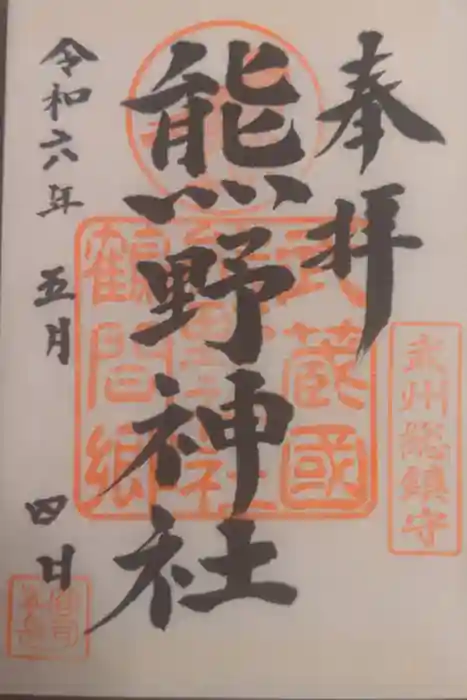 奉拝
熊野神社
令和六年 五月 四日
武蔵國
鶴間郷